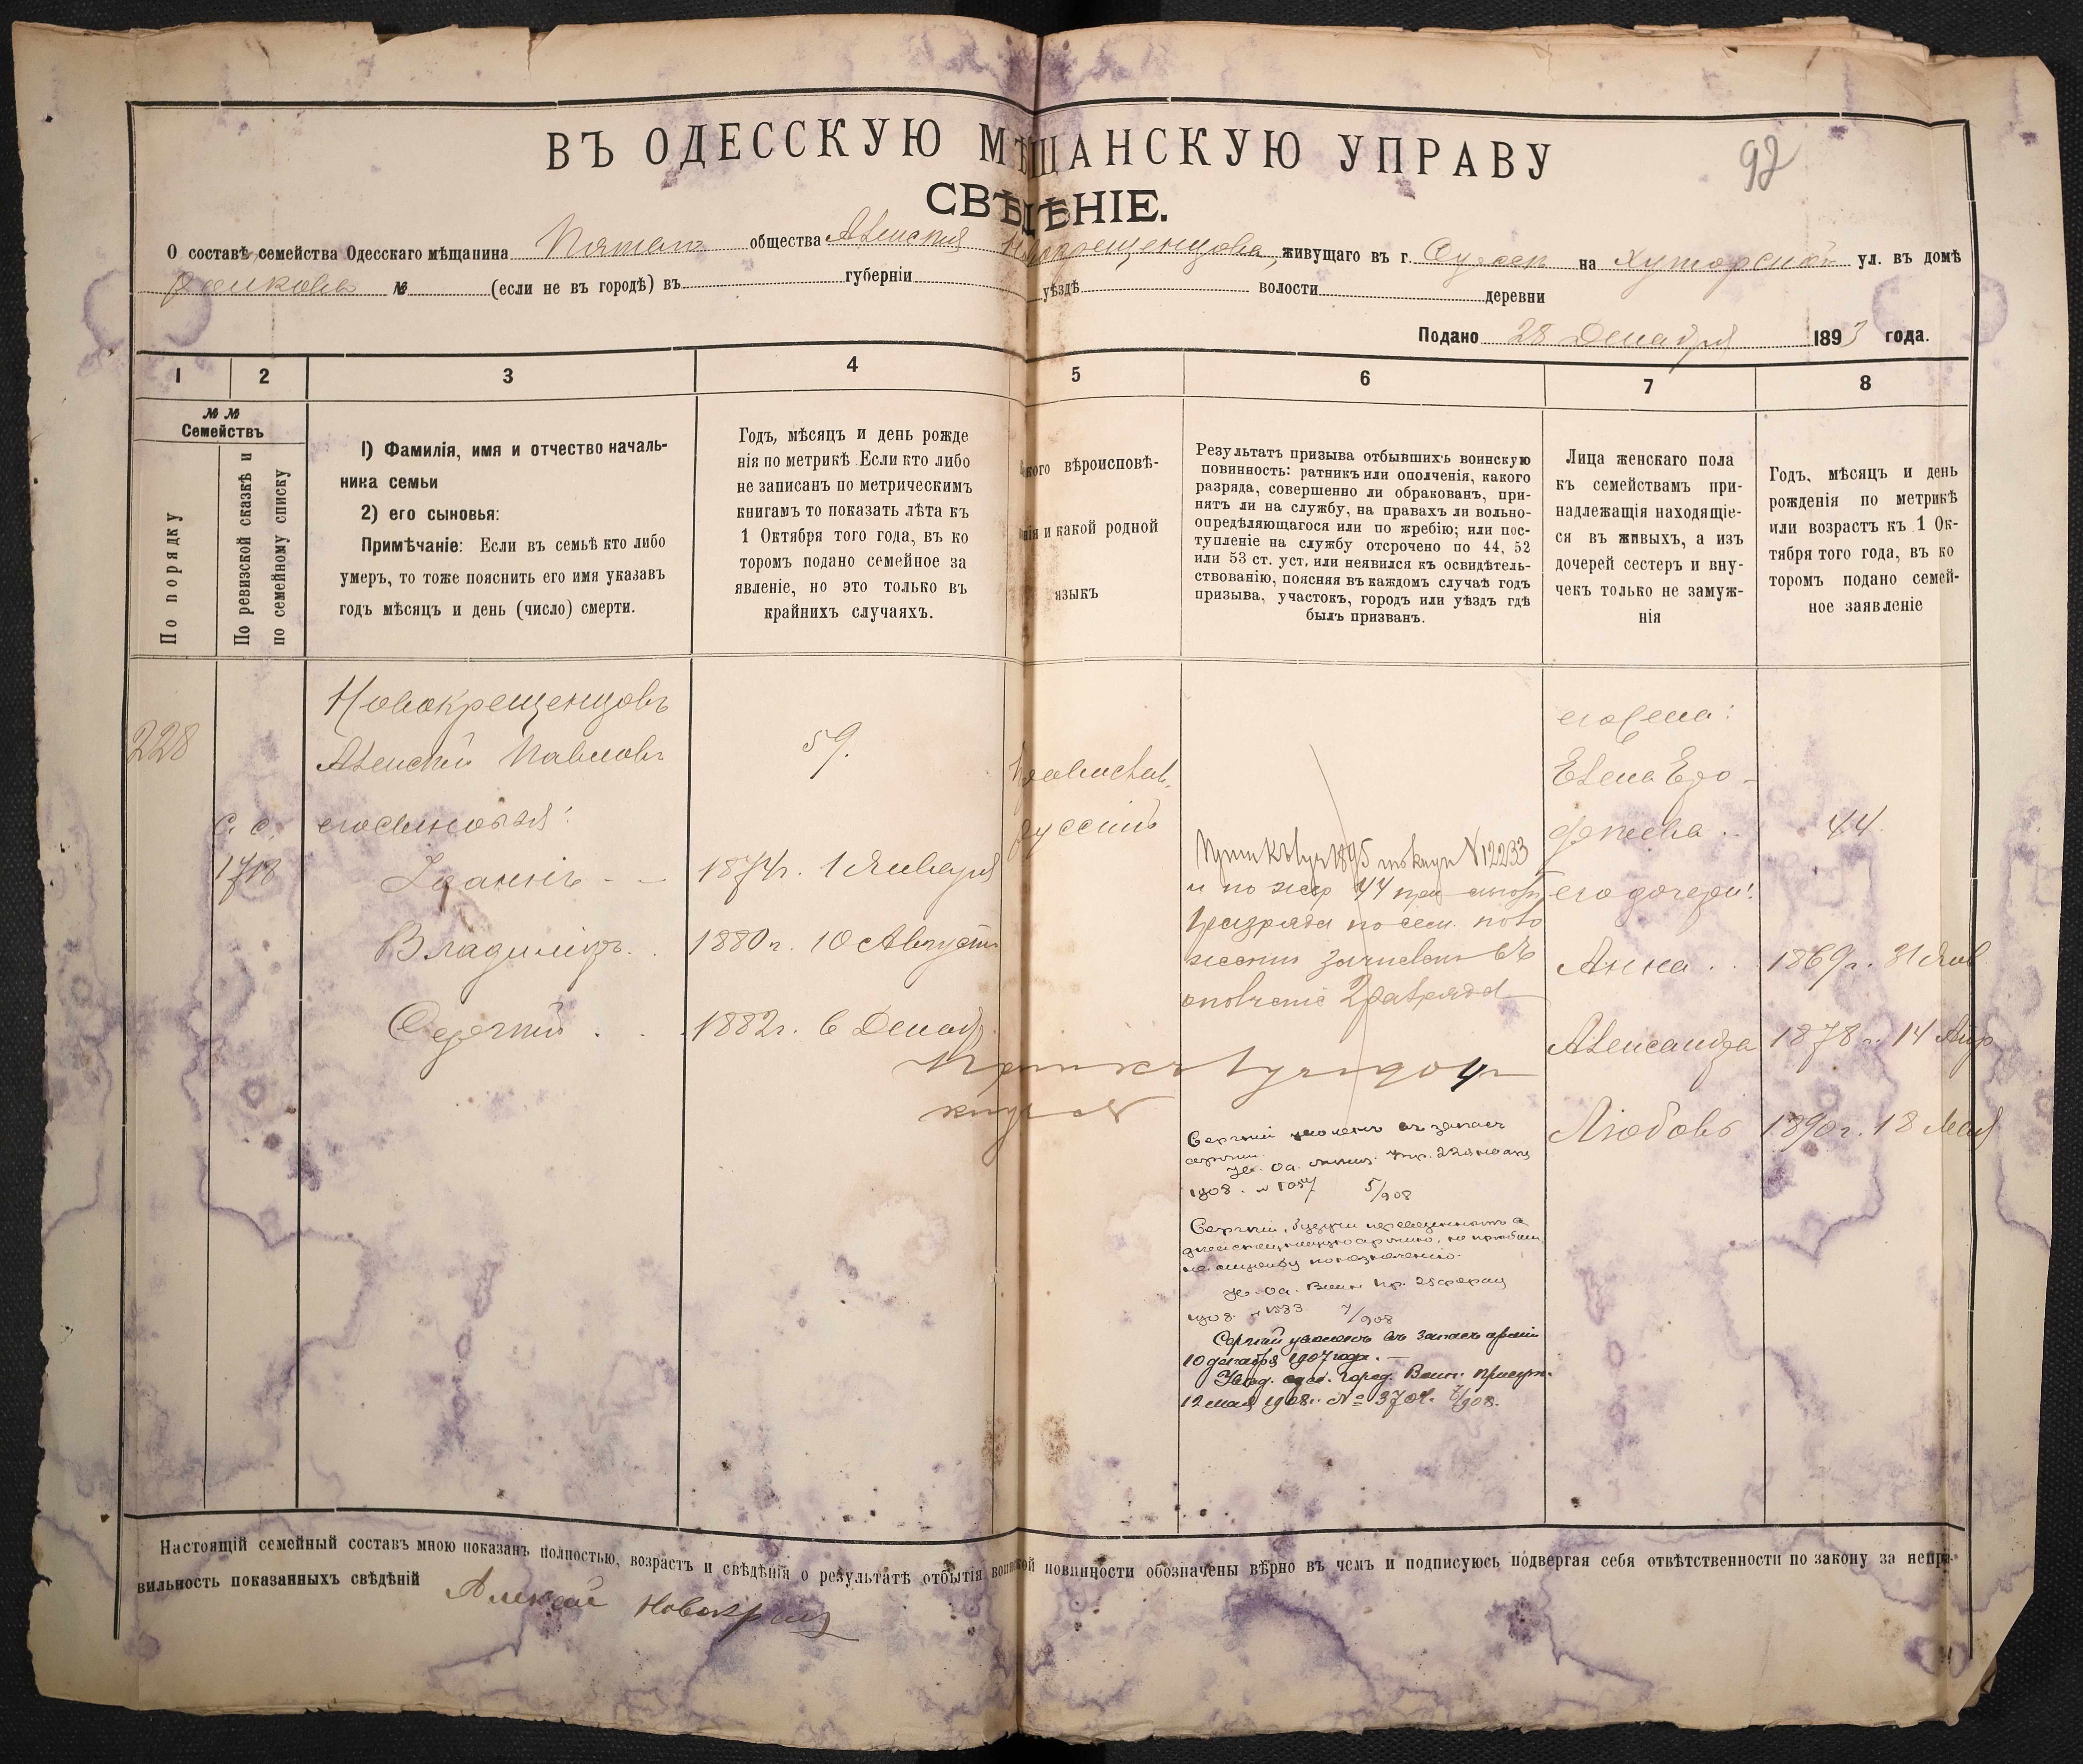 92
ВЪ ОДЕССКУЮ МѢЩАНСКУЮ УПРАВУ
СВѢДѢНІЕ.
О составѣ семейства Одесскаго мѣщанина Пятаго общества Алексѣя Новокрещенцова, живущаго въ г. Одессѣ на Хуторской ул. въ домѣ
№ (если не въ городѣ) въ губерніи уѣздѣ волости деревни
Подано 28 Декабря 1893 года.
1 2 3 4 5 6 7 8
№ № Семействъ
По порядку
По ревизской сказкѣ и
по семейному списку
1) Фамилія, имя и отчество началь-
ника семьи
2) его сыновья:
Примѣчаніе: Если въ семьѣ кто либо
умеръ, то тоже пояснить его имя указавъ
годъ мѣсяцъ и день (число) смерти.
Годъ, мѣсяцъ и день рожде
нія по метрикѣ Если кто либо
не записанъ по метрическимъ
книгамъ то показать лѣта къ
1 Октября того года, въ ко
торомъ подано семейное за
явленіе, но это только въ
крайнихъ случаяхъ.
кого вѣроисповѣ-
нія и какой родной
языкъ
Результатъ призыва отбывшихъ воинскую
повинность: ратникъ или ополченія, какого
разряда, совершенно ли обракованъ, при-
нятъ ли на службу, на правахъ ли вольно-
опредѣляющагося или по жребію; или пос-
тупленіе на службу отсрочено по 44, 52
или 53 ст. уст, или неявился къ освидѣтель-
ствованію, поясняя въ каждомъ случаѣ годъ
призыва, участокъ, городъ или уѣздъ гдѣ
былъ призванъ.
Лица женскаго пола
къ семействамъ при-
надлежащія находящіе-
ся въ живыхъ, а изъ
дочерей сестеръ и вну-
чекъ только не замуж-
нія
Годъ, мѣсяцъ и день
рожденія по метрикѣ
или возрастъ къ 1 Ок-
тября того года, въ ко
торомъ подано семей-
ное заявленіе
228
с. с.
1718
Новокрещенцовъ
Алексѣй Павловъ
его сыновья:
Іоаннъ
Владиміръ
Сергѣй
59.
1874г. 1 Января
1880г. 10 Августа
1882г. 6 Декаб.
Православ.
русскій
1895 №12233
и по жер 44
1 разряда по сем. поло
жению зачислен въ
ополченіе 2 разряда
Сергѣй уволенъ въ запасъ
арміи.
1908. № 1057 5/908
Сергѣй, будучи
Ув. Од. Воин. Пр.
1908. № 1583 7/908
Сергѣй уволенъ въ запасъ арміи
10 декабря 1907 года.
Увед. одес. город. Воин. Присут.
12 мая 1908г. № 3704. /908.
его жена:
Елена Еро-
феева
его дочери:
Анна
Александра
Любовь
44.
1869г. 31 Янв
1878г. 14 Апр
1890г. 18 Мая
Настоящій семейный составъ мною показанъ полностью, возрастъ и свѣдѣнія о результатѣ отбытія воинской повинности обозначены вѣрно въ чемъ и подписуюсь подвергая себя отвѣтственности по закону за непра-
вильность показанныхъ свѣдѣній